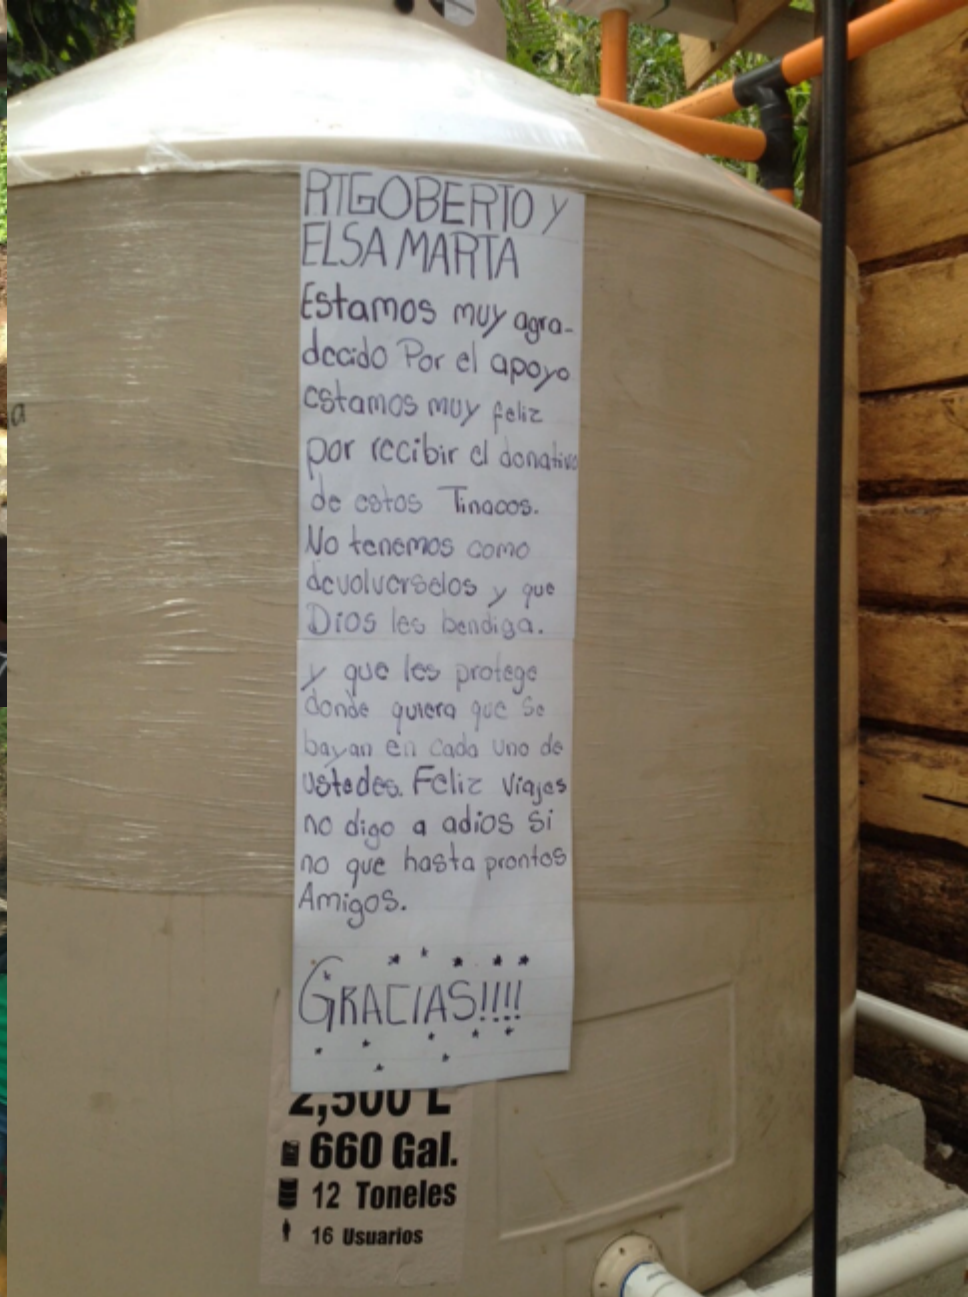 RIGOBERTO Y
ELSA MARTA
Estamos muy agra-
decido Por el apoyo
estamos muy feliz
por recibir el donativo
de estos Tinacos.
No tenemos como
devolverselos y que
Dios les bendiga.
y que les protege
donde quiera que se
bayan en cada uno de
ustedes. Feliz Viajes
no digo a adios si
no que hasta prontos
Amigos.
GRACIAS!!!!
2,500 L
660 Gal.
12 Toneles
16 Usuarios
a